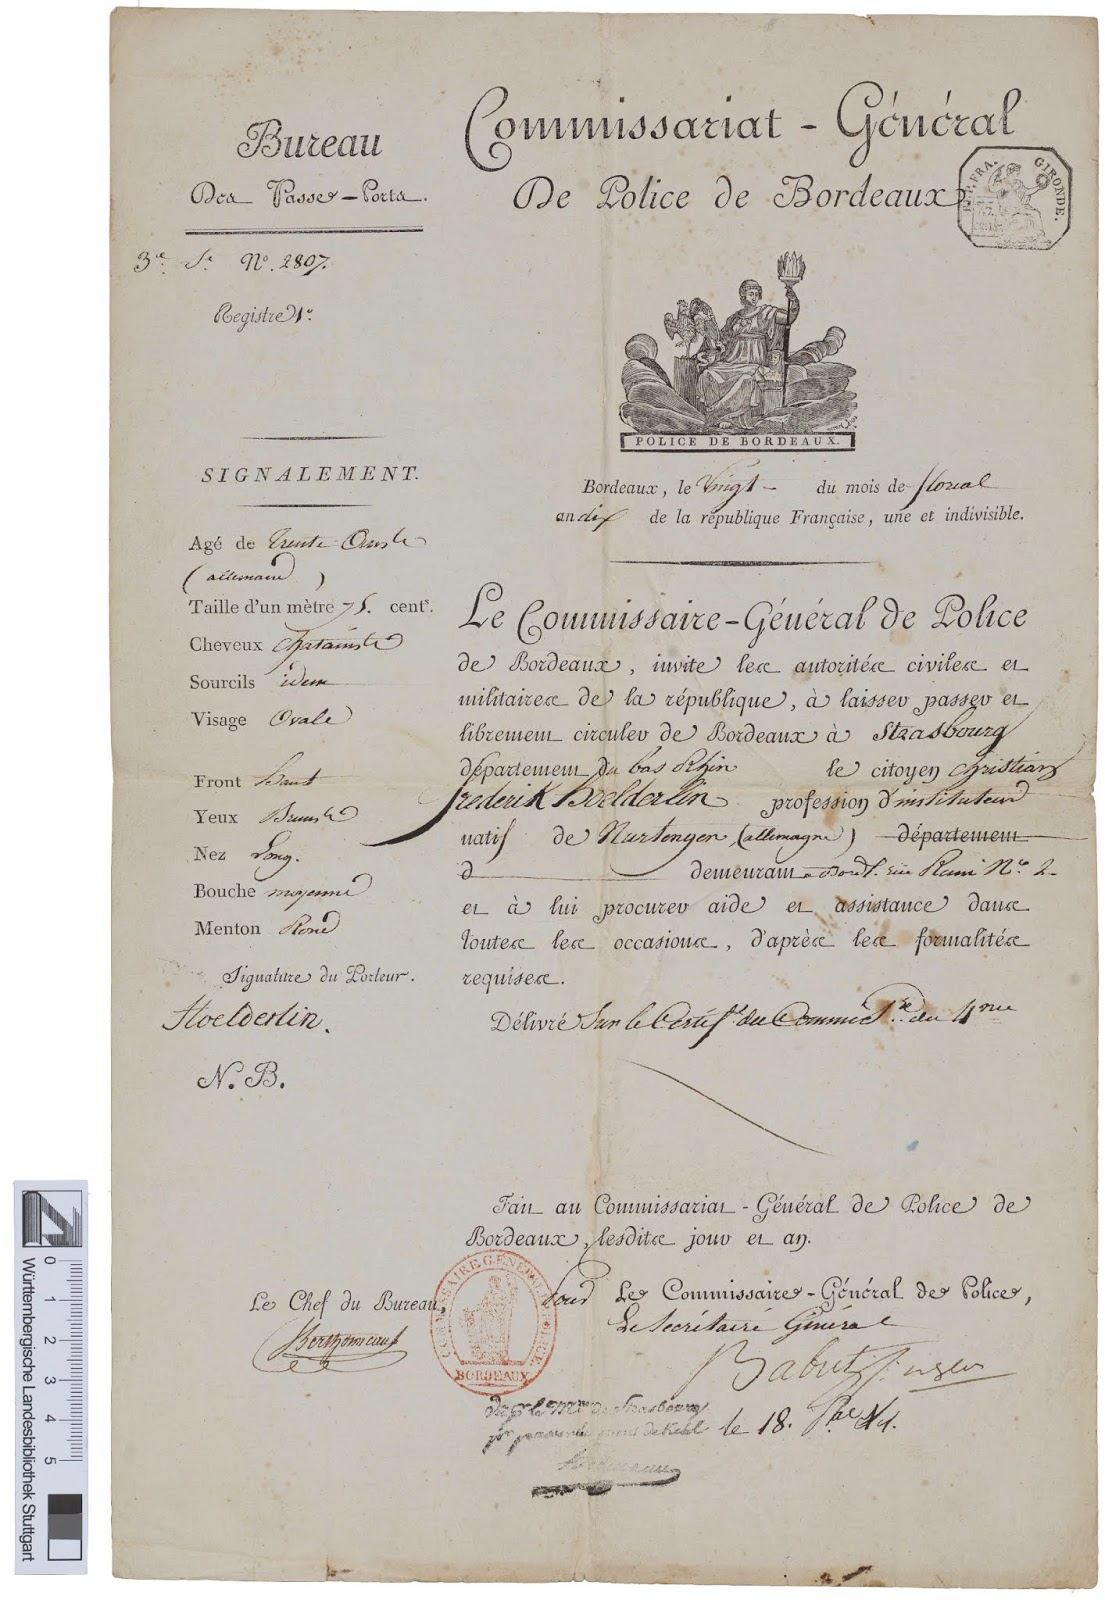 Bureau
Des Passe-Ports.
3.e S.e N.o 2807.
Registre 1.o
SIGNALEMENT.
Agé de trente Ans
(allemand)
Taille d'un mètre 75. cent.s
Cheveux chatains
Sourcils idem
Visage Ovale
Front haut
Yeux Bruns
Nez Long.
Bouche moyenne
Menton Rond
Signature du Porteur.
Hoelderlin.
N. B.
Commissariat-Général
De Police de Bordeaux
RÉP. FRA. GIRONDE.
POLICE DE BORDEAUX.
Bordeaux, le Vingt du mois de floreal
an dix de la république Française, une et indivisible.
Le Commissaire-Général de Police
de Bordeaux, invite les autorités civiles et
militaires de la république, à laisser passer et
librement circuler de Bordeaux à Strasbourg
département du bas Rhin le citoyen christian
frederik Hoelderlin profession d'instituteur
natif de Nurtengen (allemagne) département
d demeurant a Bord. rue N.o 2
et à lui procurer aide et assistance dans
toutes les occasions, d'après les formalités
requises.
Délivré Sur le Certif.t du Commis.re du 4
Fait au Commissariat-Général de Police de
Bordeaux, lesdits jour et an.
Le Chef du Bureau,
COMMISSAIRE GÉNÉRAL DE POLICE.
BORDEAUX
pour Le Commissaire-Général de Police,
Le Secrétaire Général
de Strasbourg
pont de Kehl le 18.
0 1 2 3 4 5
Württembergische Landesbibliothek Stuttgart